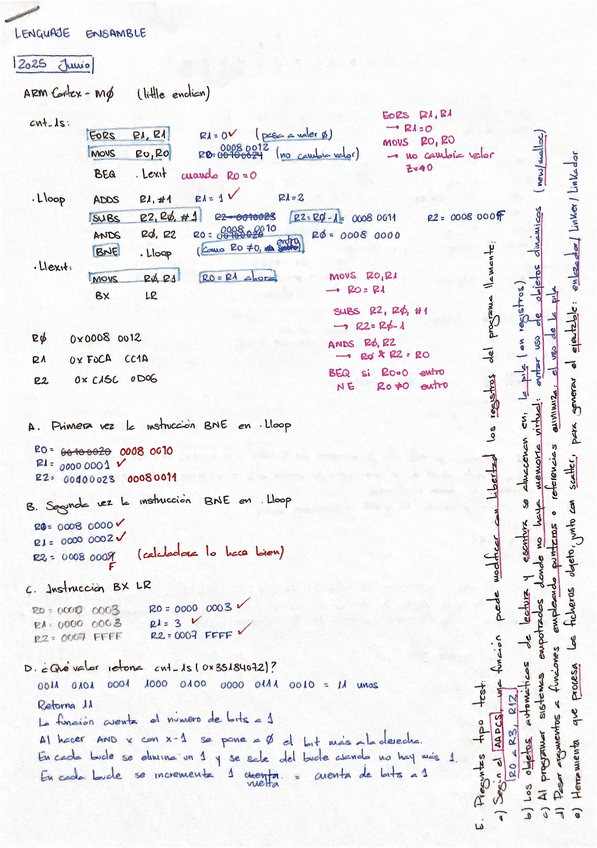 LENGUAJE ENSAMBLE
2025 Junio
ARM Cortex-MØ (little endian)
cnt_1s:
EORS R1, R1 R1=0✓ (pasa a valer Ø)
MOVS R0, R0 0008 0012 (no cambia valor)
BEQ .Lexit cuando R0=0
.Lloop ADDS R1, #1 R1=1 ✓ R1=2
SUBS R2, RØ, #1 R2=RØ-1= 0008 0011 R2= 0008 000F
ANDS RØ, R2 R0= 0008 0010 RØ= 0008 0000
BNE .Lloop (como R0≠0, entro)
.Llexit:
MOVS RØ, R1 R0=R1 ahora
BX LR
EORS R1, R1
→ R1=0
MOVS R0, R0
→ no cambia valor
MOVS R0, R1
→ R0=R1
SUBS R2, R0, #1
→ R2=R0-1
ANDS R0, R2
→ R0 & R2 = R0
BEQ si R0=0 entro
NE R0≠0 entro
RØ 0x0008 0012
R1 0x F0CA CC1A
R2 0x C15C 0D06
A. Primera vez la instrucción BNE en .Lloop
R0= 0010 0020 0008 0010
R1= 0000 0001 ✓
R2= 00100023 00080011
B. Segunda vez la instrucción BNE en .Lloop
RØ= 0008 0000 ✓
R1= 0000 0002 ✓
R2= 0008 000F (calculadora lo hace bien)
C. Instrucción BX LR
R0= 0000 0003 R0= 0000 0003 ✓
R1= 0000 0003 R1= 3 ✓
R2= 0007 FFFF R2= 0007 FFFF ✓
D. ¿Qué valor retorna cnt_1s(0x35184072)?
0011 0101 0001 1000 0100 0000 0111 0010 = 11 unos
Retorna 11
La función cuenta el número de bits a 1
Al hacer AND x con x-1 se pone a Ø el bit más a la derecha.
En cada bucle se elimina un 1 y se sale del bucle cuando no hay más 1.
En cada bucle se incrementa 1 cuenta vuelta = cuenta de bits a 1
E. Preguntas tipo test:
a) Según el AAPCS, una función puede modificar con libertad los registros del programa llamante:
R0 a R3, R12
b) Los objetos automáticos de lectura y escritura se almacenan en: la pila (en registros)
c) Al programar sistemas empotrados donde no haya memoria virtual: evitar uso de objetos dinámicos (new/malloc)
d) Pasar argumentos a funciones empleando punteros o referencias minimiza: el uso de la pila
e) Herramienta que procesa los ficheros objeto, junto con scatter, para generar el ejecutable: enlazador/linker/linkador